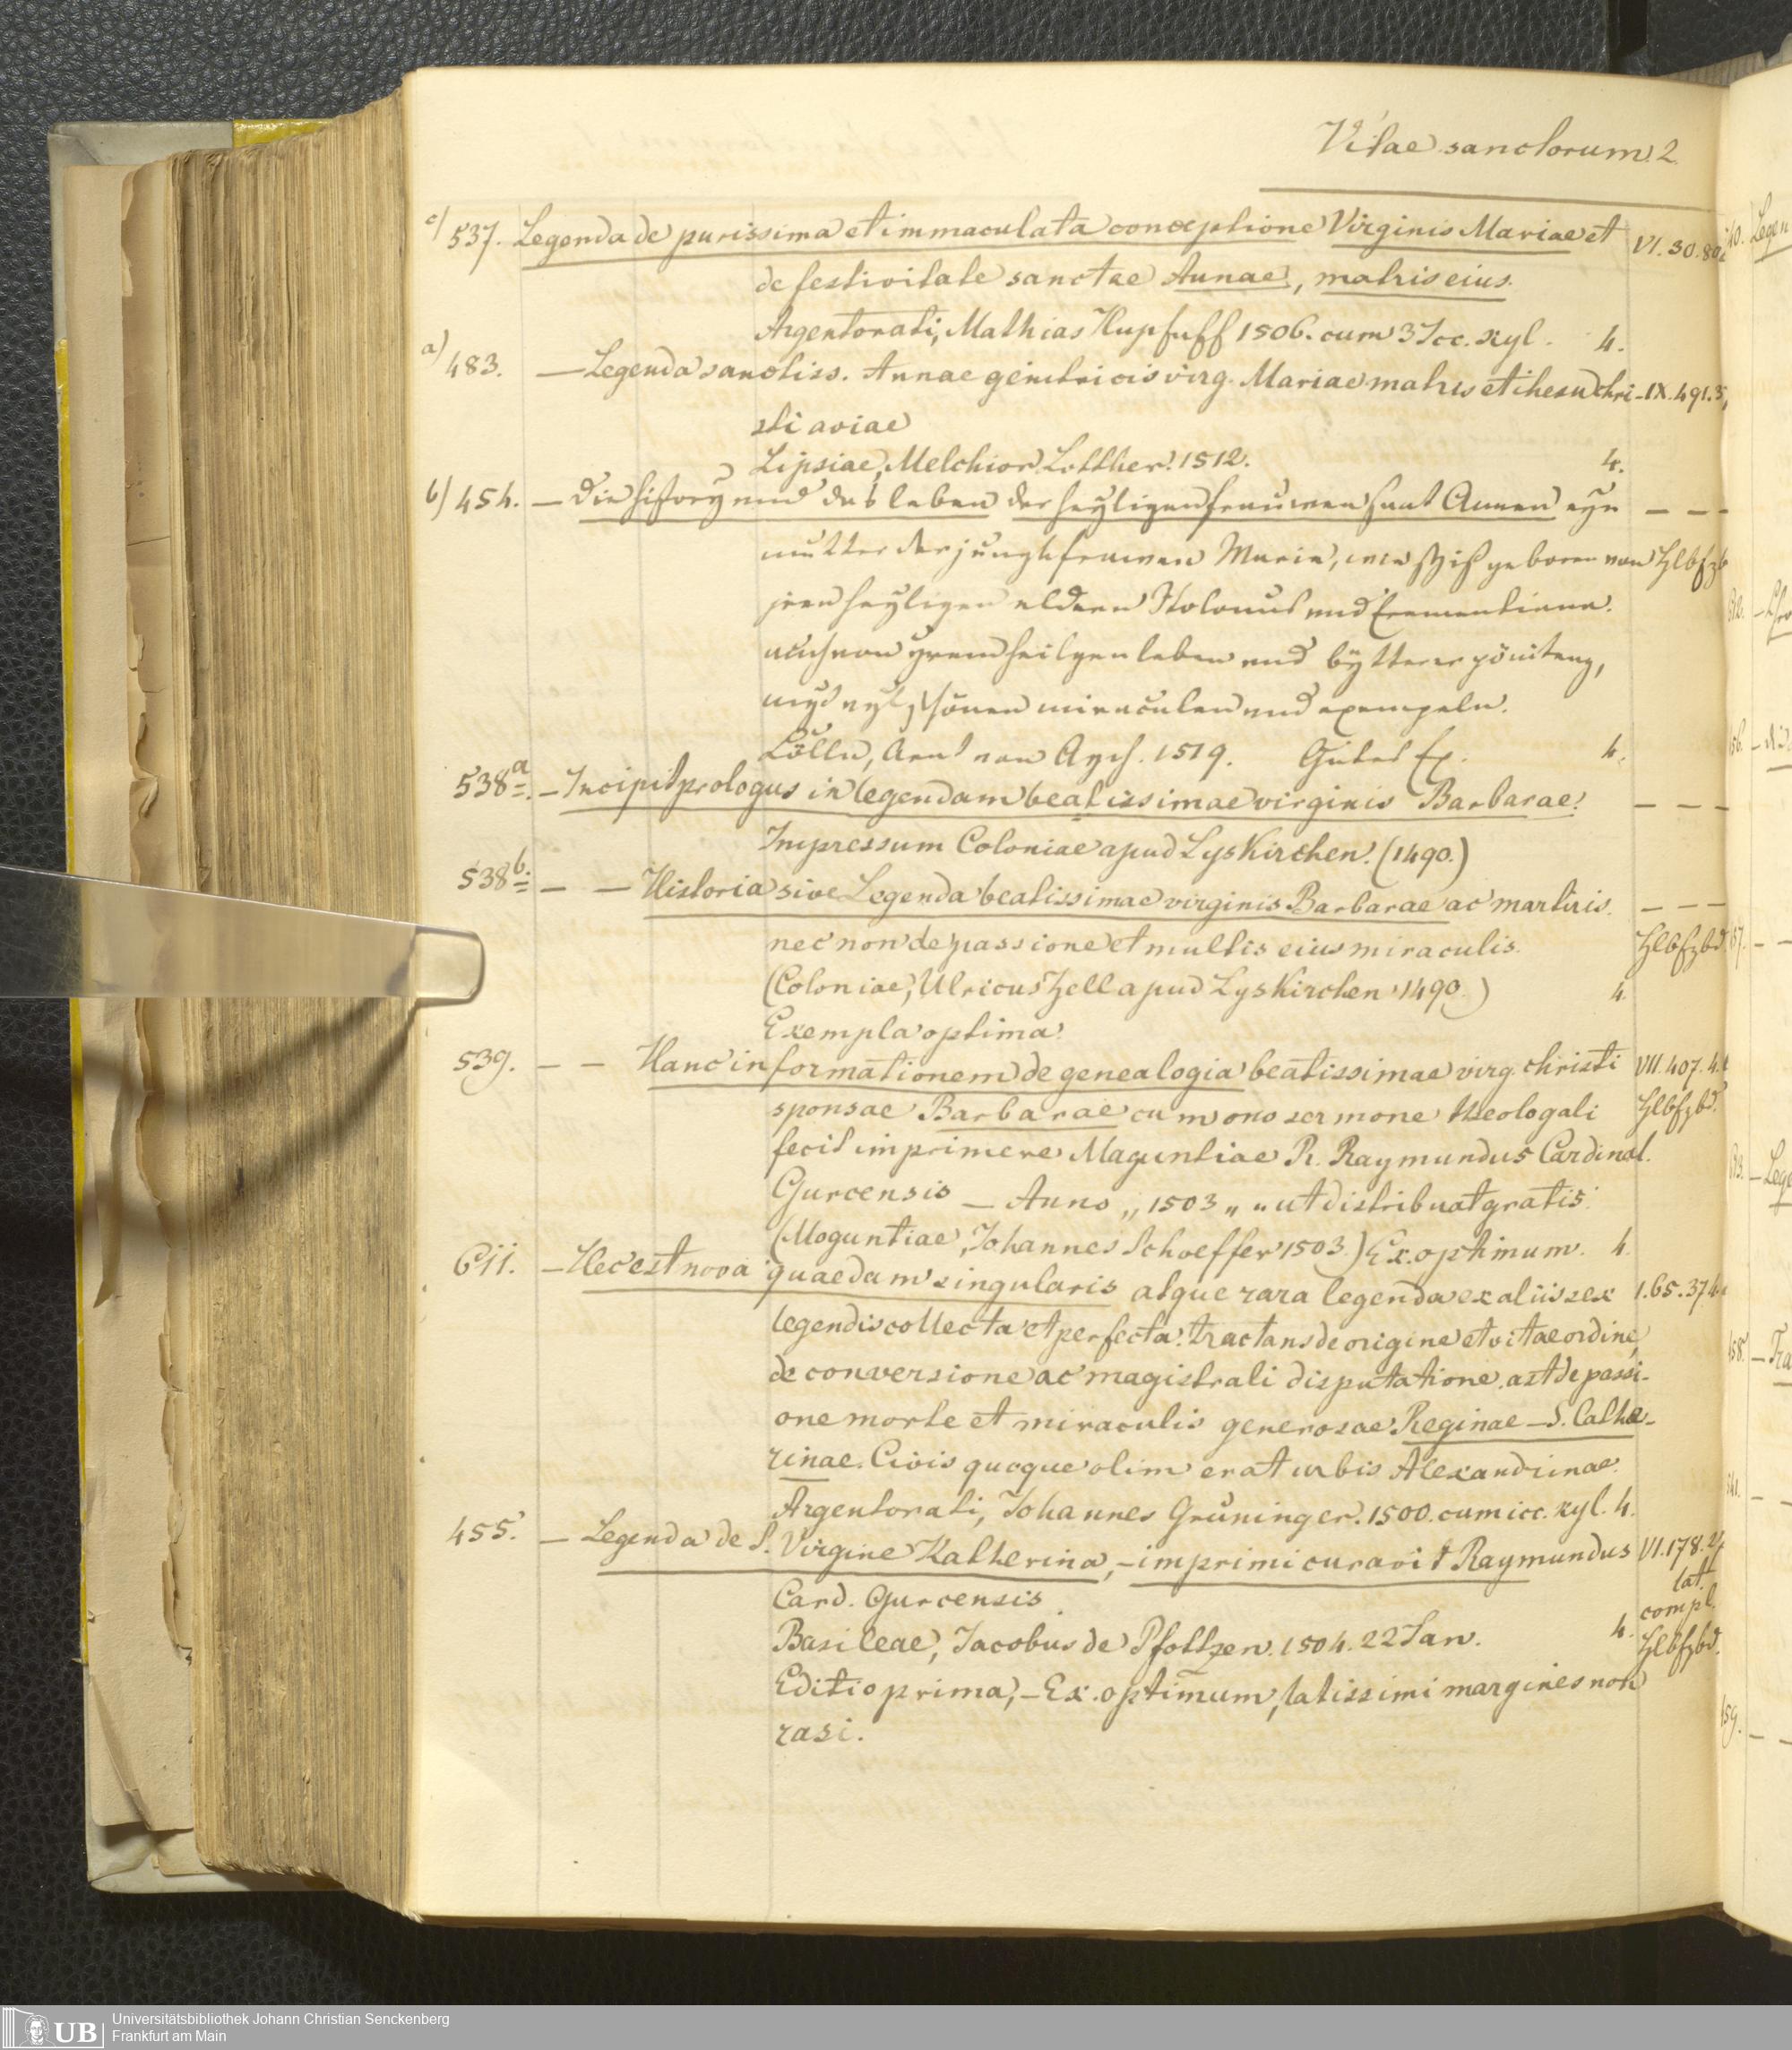 Vitae sanctorum. 2.
c) 537. Legenda de purissima et immaculata conceptione Virginis Mariae et VI. 30. 80
de festivitate sanctae Annae, matris eius.
Argentorati, Mathias Hupfuff 1506. cum 3 Icc. xyl. 4.
a) 483. — Legenda sanctiss. Annae genitricis virg. Mariae matris et ihesu chri- IX. 491. 3
sti aviae
Lipsiae, Melchior Lotther. 1512. 4.
b) 454. — Die history und das leben der heyligen frauwen sant Annen eyn — — —
mutter der jungkfrauwen Maria, wie sy ist geboren von Hlbfzb
jren heyligen eldern Stolanus und Emerentiana.
auch von yrem heilgen leben und bytterer pönitentz,
myd vyl schönen miraculen und exempeln.
Cölln, Arnt von Aych. 1519. Gutes Ex. 4.
538a. — Incipit prologus in legendam beatissimae virginis Barbarae. — — —
Impressum Coloniae apud Lyskirchen. (1490.)
538b. — — Historia sive Legenda beatissimae virginis Barbarae ac martiris. — — —
nec non de passione et multis eius miraculis. Hlbfzbd.
(Coloniae, Ulricus Zell apud Lyskirchen 1490.) 4.
Exempla optima.
539. — — Hanc informationem de genealogia beatissimae virg. christi VII. 407. 4.
sponsae Barbarae cum ono sermone theologali Hlbfzbd.
fecit imprimere Maguntiae R. Raymundus Cardinal.
Gurcensis — Anno „ 1503 „ „ ut distribuat gratis.
(Moguntiae, Johannes Schoeffer 1503.) Ex. optimum. 4.
611. — Hec est nova quaedam singularis atque rara legenda ex aliis sex 1. 65. 374
legendis collecta et perfecta: tractans de origine et vitae ordine,
de conversione ac magistrali disputatione. ast de passi-
one morte et miraculis generosae Reginae — S. Cathe-
rinae. Civis quoque olim erat urbis Alexandrinae.
Argentorati, Johannes Grüninger. 1500. cum icc. xyl. 4.
455. — Legenda de S. Virgine Katherina, — imprimi curavit Raymundus VI. 178. 2
Card. Gurcensis lat. compl.
Basileae, Jacobus de Pfoltzen. 1504. 22 Jan. 4. Hlbfzbd.
Editio prima, — Ex. optimum, latissimi margines non
rasi.
UB
Universitätsbibliothek Johann Christian Senckenberg
Frankfurt am Main